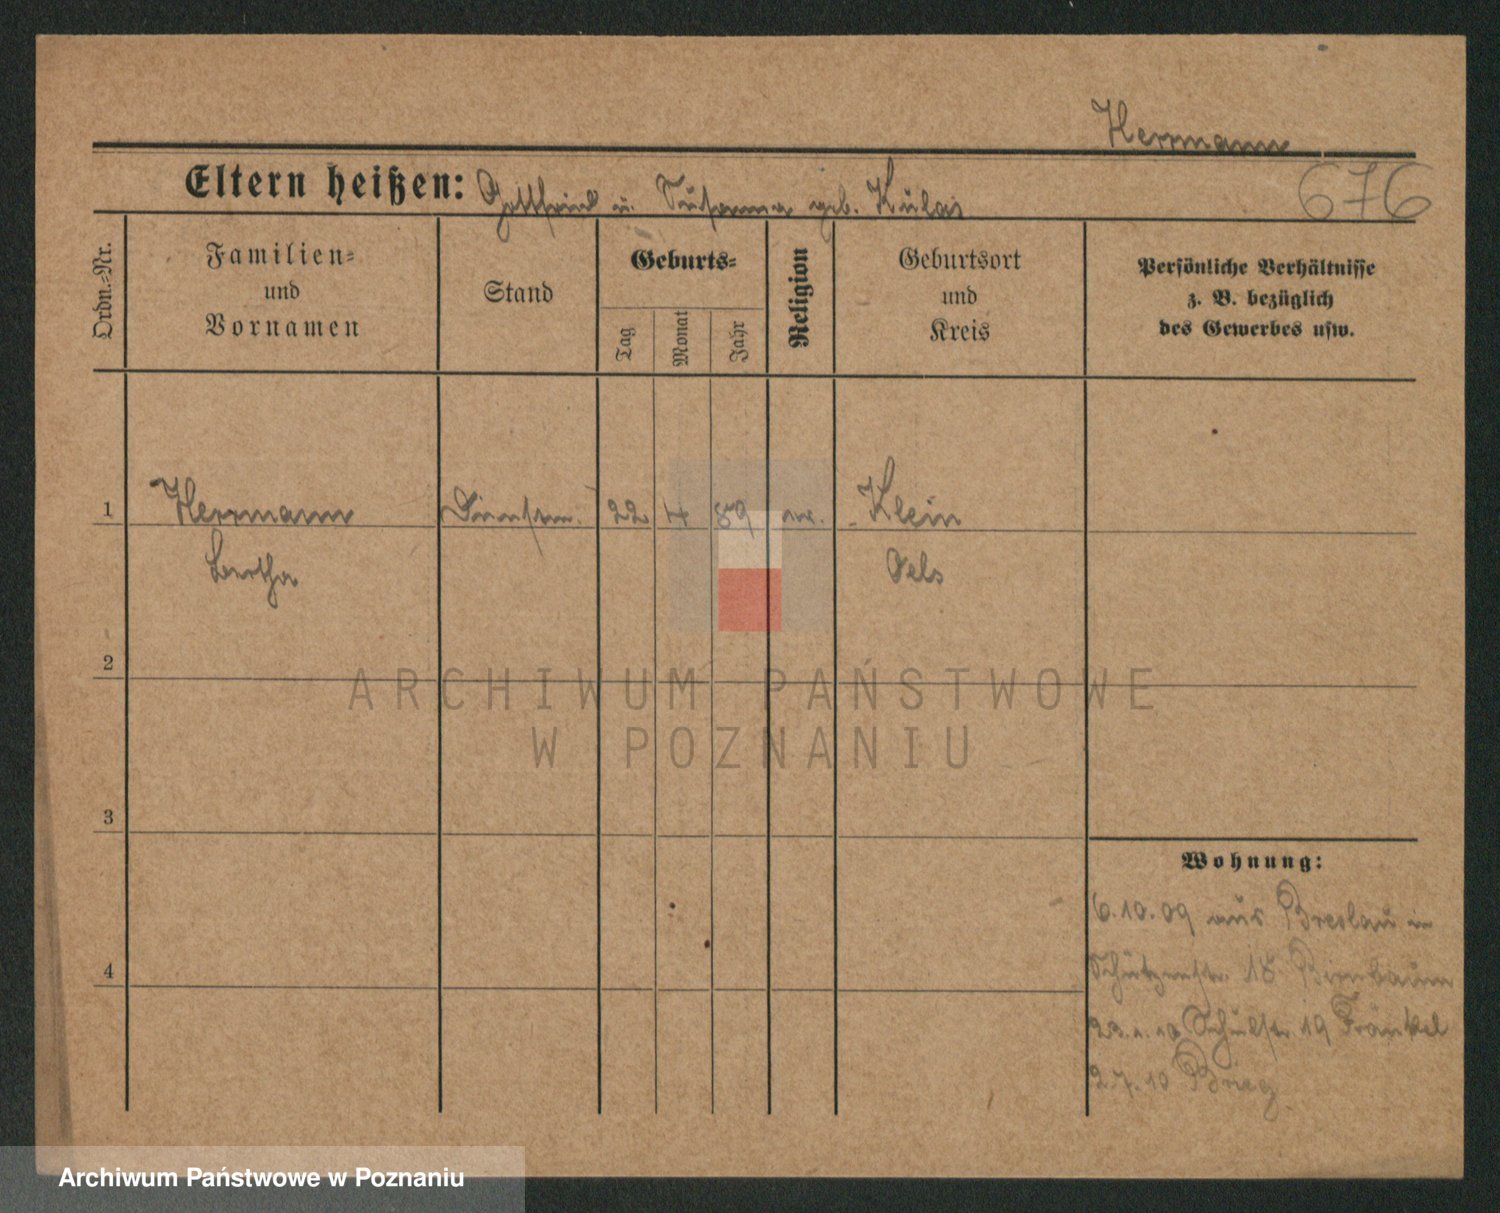 Herrmann
676
Eltern heißen: Gottfried u. Susanna geb. Kulas
Ordn.-Nr.
Familien-
und
Vornamen
Stand
Geburts-
Tag
Monat
Jahr
Religion
Geburtsort
und
Kreis
Persönliche Verhältnisse
z. B. bezüglich
des Gewerbes usw.
1 Herrmann 22 4 89 ev. Klein
Bertha Oels
2
3
4
Wohnung:
6.10.09 aus Breslau in
Schützenstr. 18 Birnbaum
23.1.10 Schulstr. 19 Fränkel
2.7.10 Brieg
ARCHIWUM PAŃSTWOWE
W POZNANIU
Archiwum Państwowe w Poznaniu